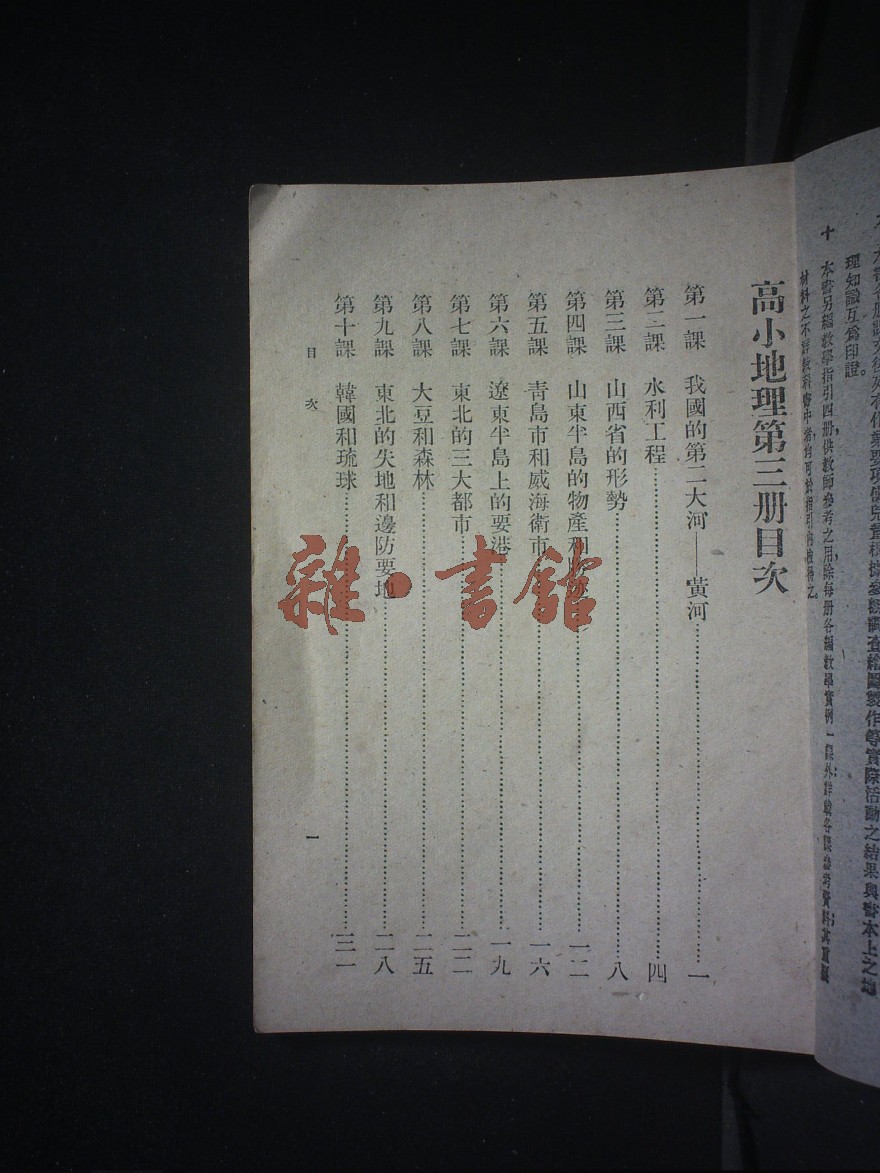 理知識互爲印證。
十 本書另編教學指引四册，供教師參考之用，除每册各編教學實例一課外，詳載各課參考資料，其重要
材料之不詳教科書中者，均可於指引內檢得之。
高小地理第三册目次
第一課 我國的第二大河——黃河………一
第二課 水利工程………四
第三課 山西省的形勢………八
第四課 山東半島的物產和………一二
第五課 青島市和威海衛市………一六
第六課 遼東半島上的要港………一九
第七課 東北的三大都市………二二
第八課 大豆和森林………二五
第九課 東北的失地和邊防要地………二八
第十課 韓國和琉球………三一
目次
一
雜·書館